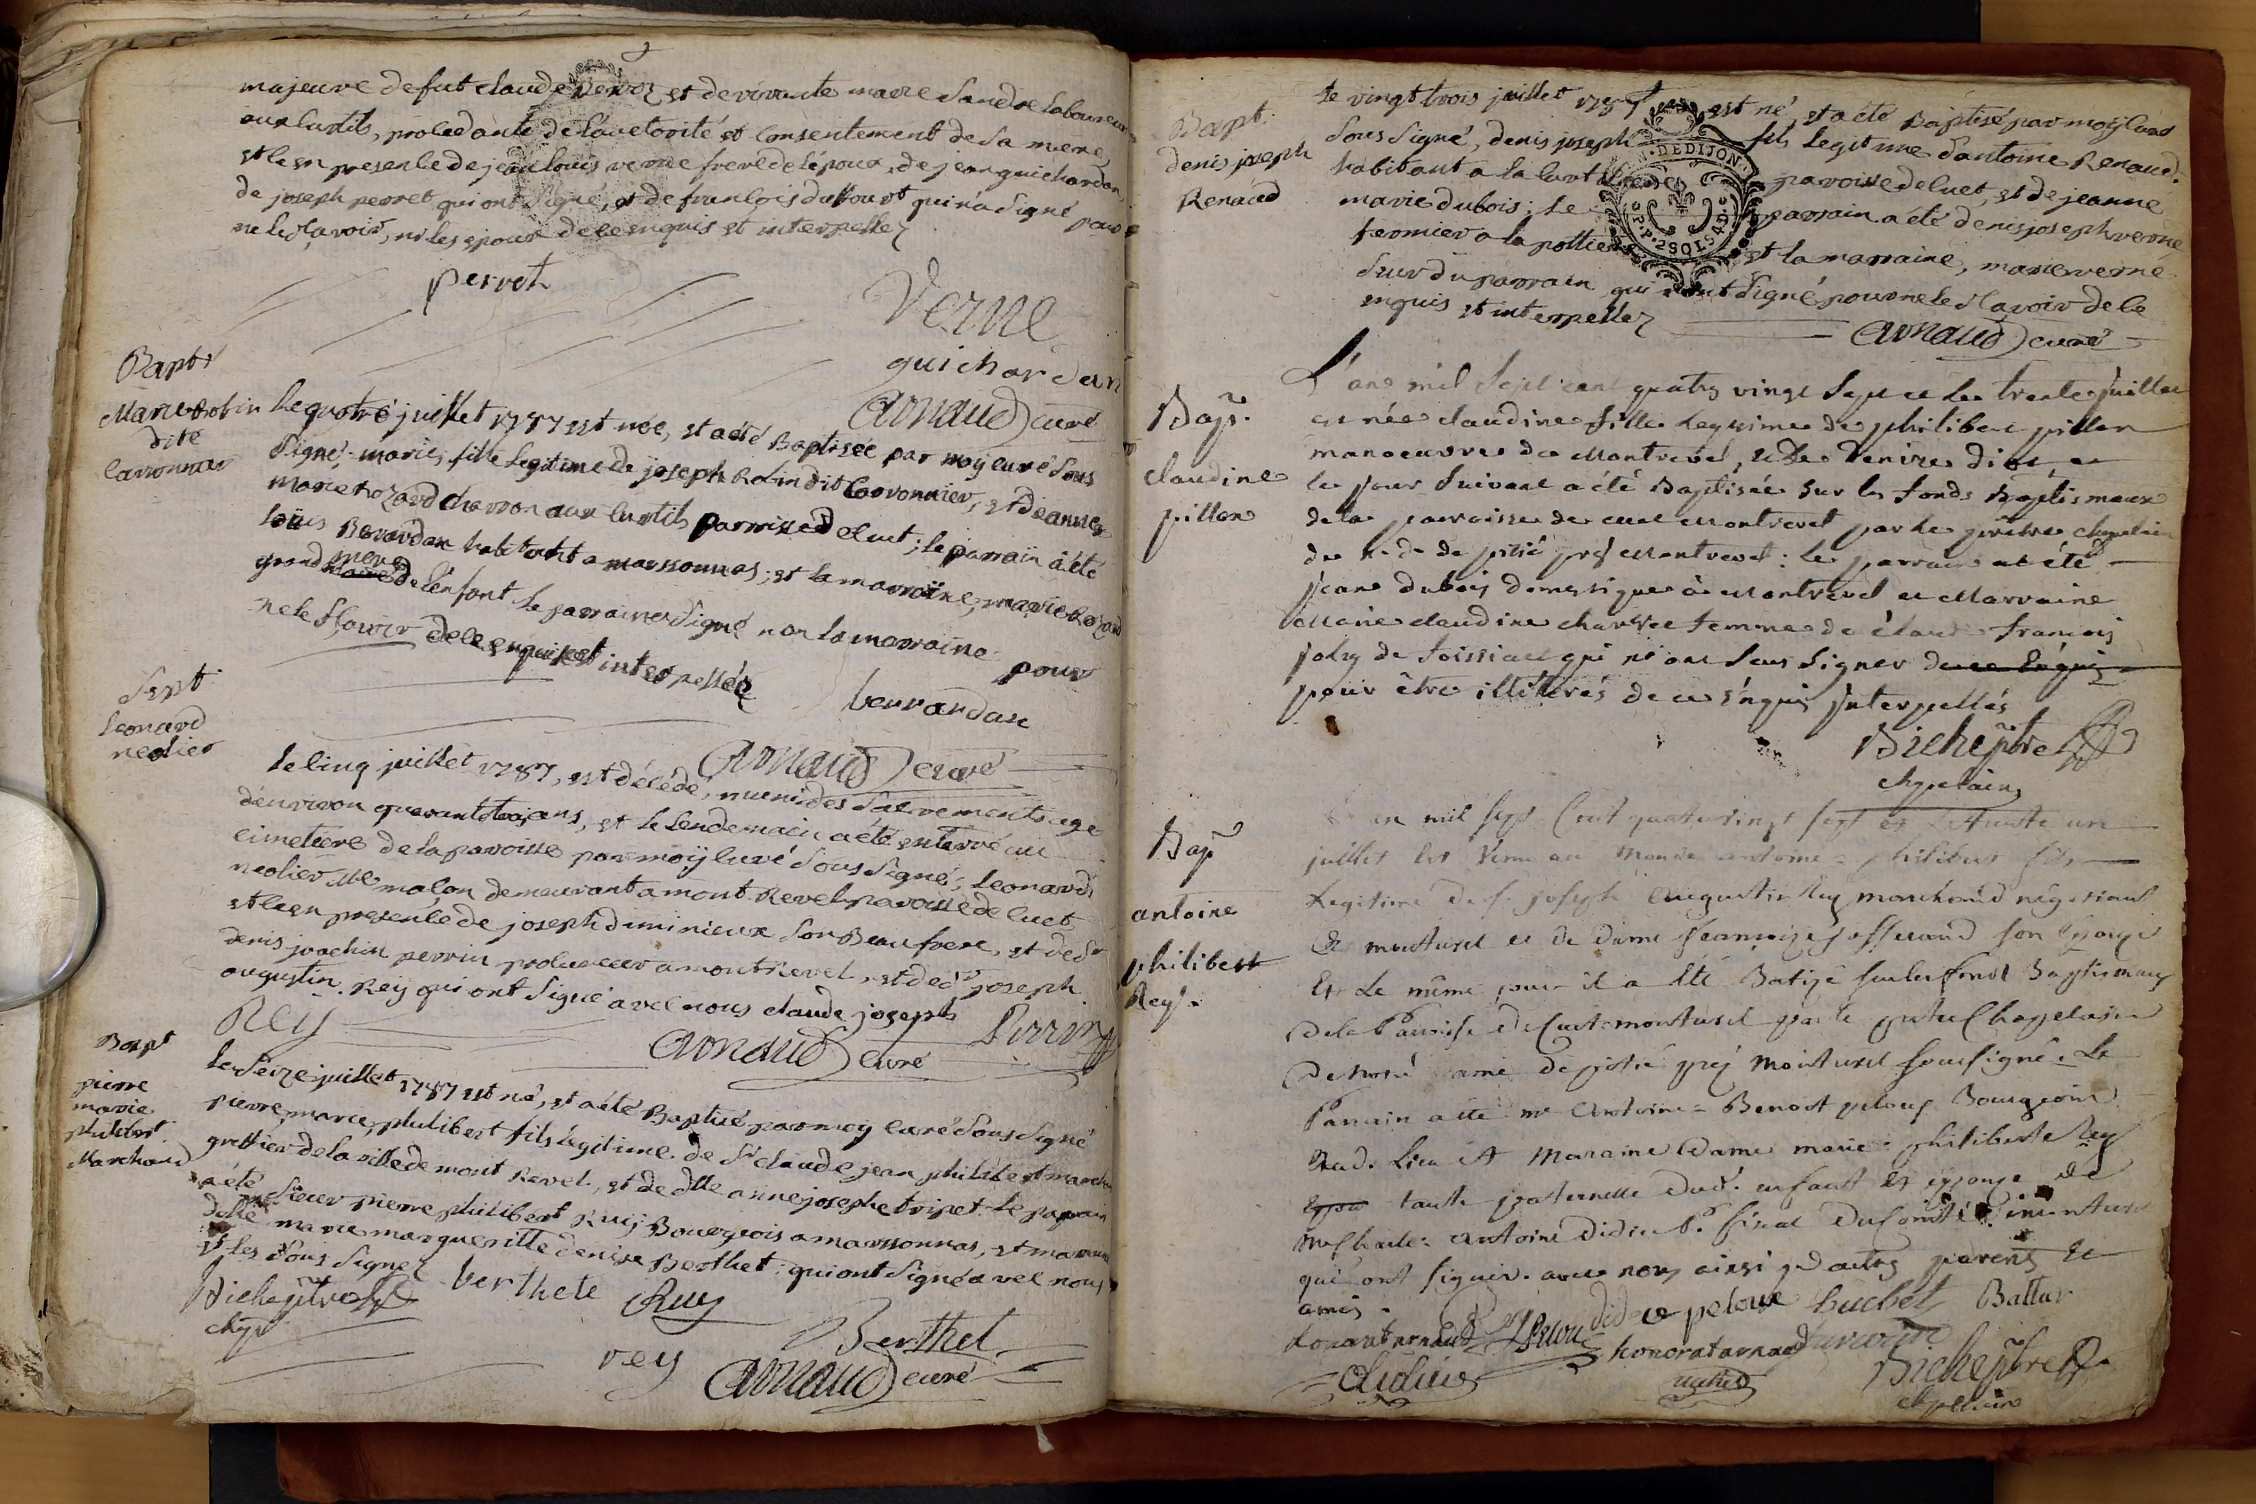 majeure de fut claude et de vivante marie Sandre laboureur
aux curtils, procedante de l'auctorité et consentement de sa mere,
et le en presence de jean louis verne frere de l'époux, de jean guichardan,
de joseph perret qui ont signé, et de francois dufourt qui n'a signé pour
ne le sçavoir, ni les epoux de ce enquis et interpellez
perret
Verne
guichardan
Arnaud curé
Bapt
Marie Robin
dite
Carronnier
le quatre juillet 1787 est née, et a été Baptisée par moÿ curé sous
signé, marie, fille legitime de joseph Robin dit Carronnier, et d'anne
marie rozard charron aux curtils parroisse de cuet; le parrain a été
loüis Berardan habitant a marsonnas; et la marraine, marie Rozard
grand mere de l'enfant le parrain a signé non la marraine pour
ne le sçavoir de ce enquise et interpellée
berrardan
Arnaud curé
Sept
leonard
neolier
le cinq juillet 1787, est décédé, muni des sacrements age
d'environ quarante trois ans, et le lendemain a été enterré au
cimetiere de la paroisse par moÿ curé sous signé, leonard
neolier Me maçon demeurant a mont Revel paroisse de cuet
et le en presence de joseph deminieux son Beau frere, et de Sr
denis joachin perrin procureur a mont revel, et de Sr joseph
augustin Reij qui ont signé avec nous claude joseph
Reij
Perrin
Arnaud curé
Bapt
pierre
marie
philibert
Marchand
le seize juillet 1787 est né, et a été Baptisé par moy curé sous signé
pierre, marie, philibert fils legitime de Sr claude jean philibert marchand
greffier de la ville de mont Revel, et de dlle anne josephe tripet le parrain
a été Sieur pierre philibert Ruij Bourgeois a marsonnas, et marraine
dlle marie margueritte denise Berthet; qui ont signé avec nous
et les sous signez
Biche ptre
chpn
berthete
Ruy
Berthet
rey
Arnaud curé
Bapt
denis joseph
Renaud
le vingt trois juillet 1787 est né, et a été Baptisé par moÿ curé
sous signé, denis joseph fils legitime d'antoine Renaud
habitant a la curt paroisse de cuet, et de jeanne
marie dubois; le parrain a été denis joseph verne
fermier a la pottiere et la marraine, marie verne
sœur du parrain qui n'ont signé pour ne le sçavoir de ce
enquis et interpellez
Arnaud curé
G.N. DE DIJON
P.P. 2 SOLS 4 D.
Bap.
claudine
pillon
L'an mil sept cent quatre vingt sept et le trente juillet
est née claudine fille legitime de philibert pillon
manoeuvre de Montrevel, et de Denise dior, et
le jour suivant a été Baptisée sur les fonds Baptismaux
de la parroisse de cuet Montrevel par le prêtre chapelain
de n. d. de pitié prés Montrevel: le parrain at été
jean dubois domestique à Montrevel et Marraine
Marie claudine charvet femme de claude francois
joly de foissiat qui n'ont seus signer de ce Enquis
pour être illiterés de ce enquis jnterpellés
Biche ptre
chapelain
Bap
antoine
philibert
Rey.
L'an mil sept Cent quatrevingt sept et le trente un
juillet est Venu au Monde antoine - philibert fils
Legitime de Sr joseph Augustin Rey marchand négotiant
de monturel et de dame françoise josserand son Epouse
Et Le même jour il a été Batizé sur les fonds Baptismaux
de la Parroisse de Cuet monturel par le prêtre Chapelain
de notre dame de pitié prés Monturel soussigné. Le
Parrain a été mr Antoine = Benoit peloux Bourgeois
dud. Lieu et Maraine dame marie = philiberte Rey
epou tante paternelle dud. enfant et epouse de
Mr Charle = antoine Didier Pr fiscal du Comté de monturel
qui ont signés. avec nous ainsi que d'autres parents et
amis.
honorat arnaud
didier peloux
huchet
Ballar
honorat arnaud
Didier
Biche ptre
chapelain